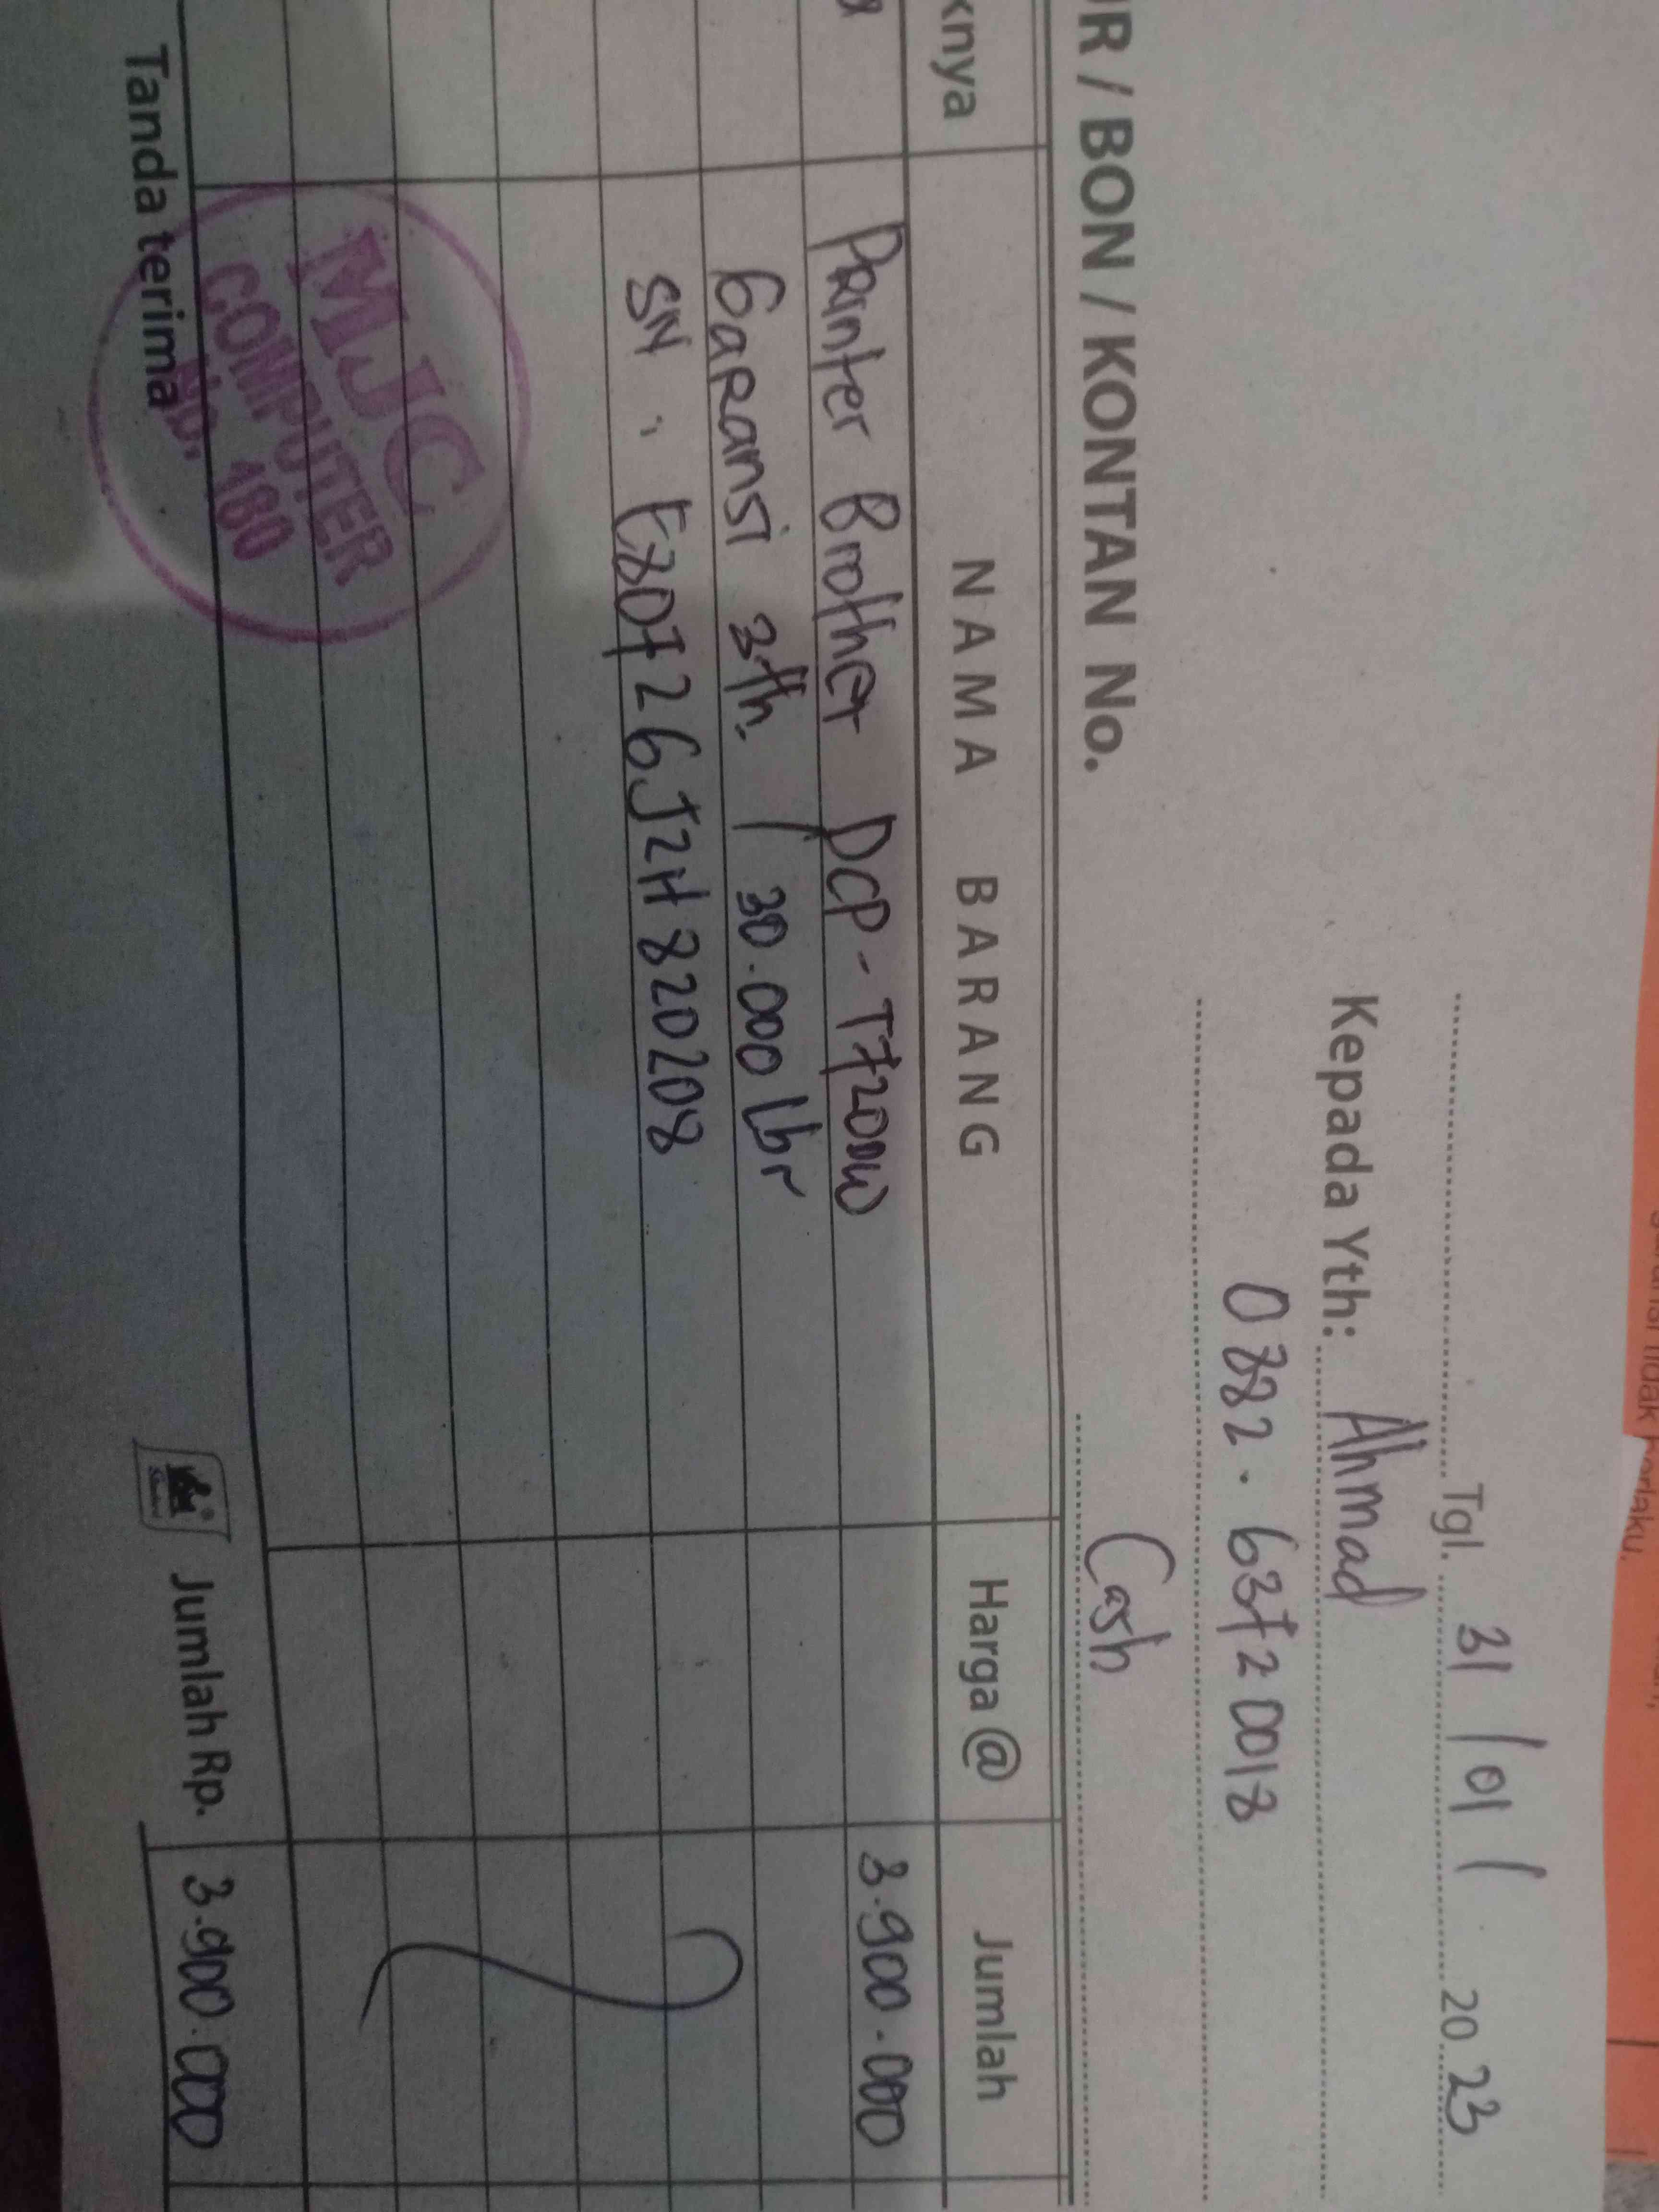 Tgl. 31 / 01 / 20 23
Kepada Yth: Ahmad
0882 . 6372 0018
Cash
/ BON / KONTAN No.
knya NAMA BARANG Harga @ Jumlah
Printer Brother DCP - T720DW 3.900.000
Garansi 3th. / 30.000 lbr
SN : E80726J2H820208
MJC
COMPUTER
No. 180
Tanda terima Jumlah Rp. 3.900.000